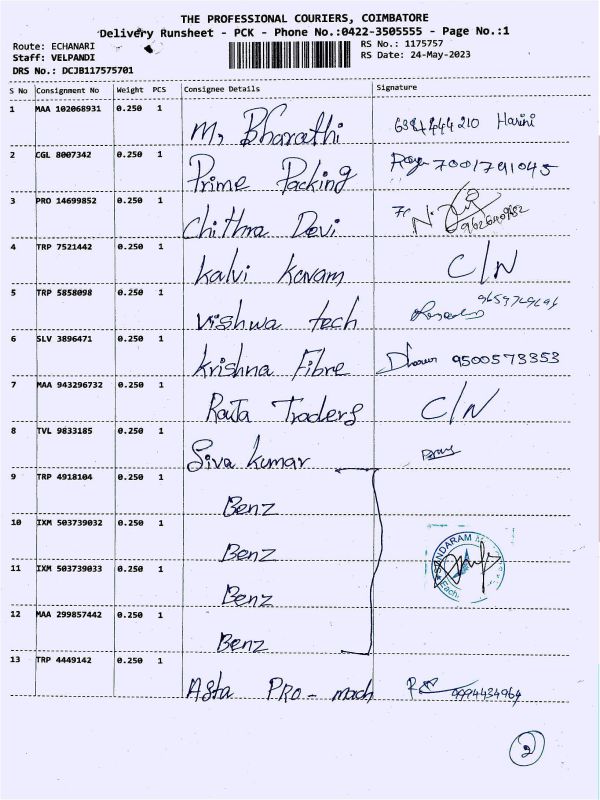 THE PROFESSIONAL COURIERS, COIMBATORE
Delivery Runsheet - PCK - Phone No.:0422-3505555 - Page No.:1
Route: ECHANARI
RS No.: 1175757
Staff: VELPANDI
RS Date: 24-May-2023
DRS No.: DCJB117575701
S No Consignment No Weight PCS Consignee Details Signature
1 MAA 102068931 0.250 1 M. Bharathi Harini
2 CGL 8007342 0.250 1 Prime Packing 7001791045
3 PRO 14699852 0.250 1 Chithra Devi
4 TRP 7521442 0.250 1 Kalvi Kavam C/N
5 TRP 5858098 0.250 1 Vishwa tech
6 SLV 3896471 0.250 1 Krishna Fibre 9500573353
7 MAA 943296732 0.250 1 Raja Traders C/N
8 TVL 9833185 0.250 1 Siva kumar
9 TRP 4918104 0.250 1 Benz
10 IXM 503739032 0.250 1 Benz
SUNDARAM
11 IXM 503739033 0.250 1 Benz
12 MAA 299857442 0.250 1 Benz
13 TRP 4449142 0.250 1 Asta PRO - mach 9994434964
2